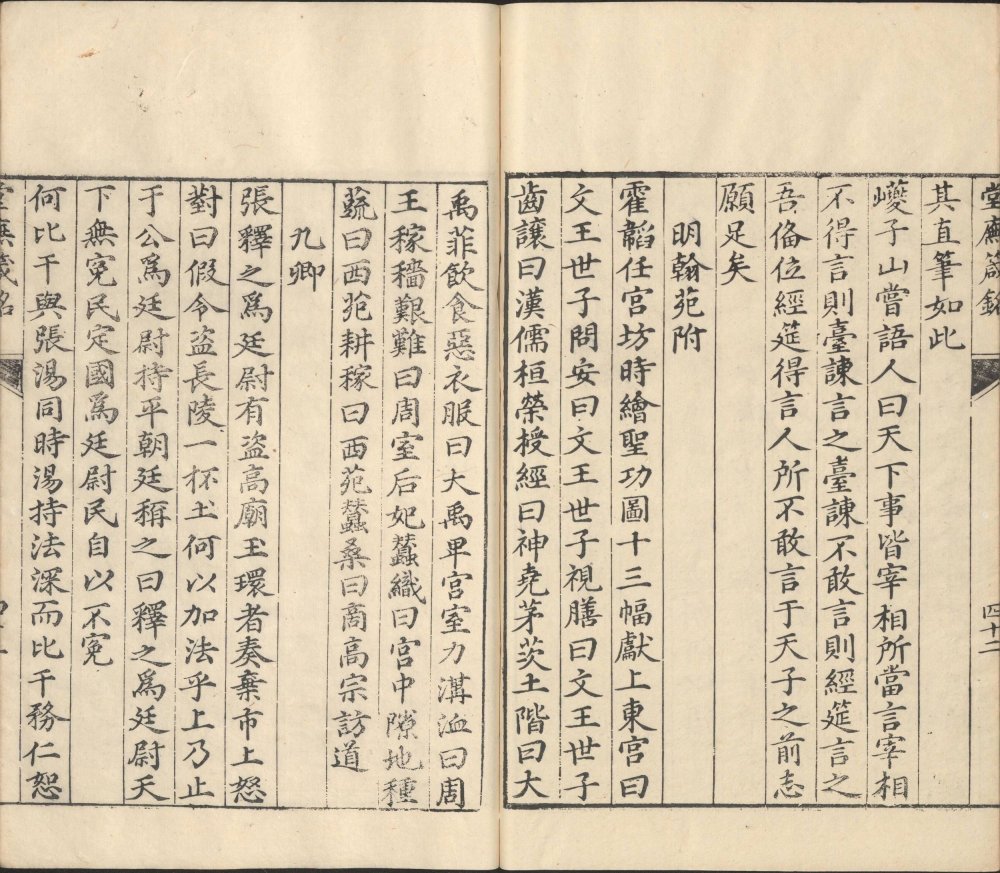 堂廡箴銘
四十二
其直筆如此
巙子山嘗語人曰天下事皆宰相所當言宰相
不得言則臺諫言之臺諫不敢言則經筵言之
吾偹位經筵得言人所不敢言于天子之前志
願足矣
明翰苑附
霍韜任宮坊時繪聖功圖十三幅獻上東宮曰
文王世子問安曰文王世子視膳曰文王世子
齒讓曰漢儒桓榮授經曰神堯茅茨土階曰大
禹菲飲食惡衣服曰大禹卑宮室力溝洫曰周
王稼穡艱難曰周室后妃蠶織曰宮中隙地種
蔬曰西苑耕稼曰西苑蠶桑曰商高宗訪道
九卿
張釋之為廷尉有盜高廟玉環者奏棄市上怒
對曰假令盜長陵一杯土何以加法乎上乃止
于公為廷尉持平朝廷稱之曰釋之為廷尉天
下無冤民定國為廷尉民自以不冤
何比干與張湯同時湯持法深而比干務仁恕
堂廡箴銘